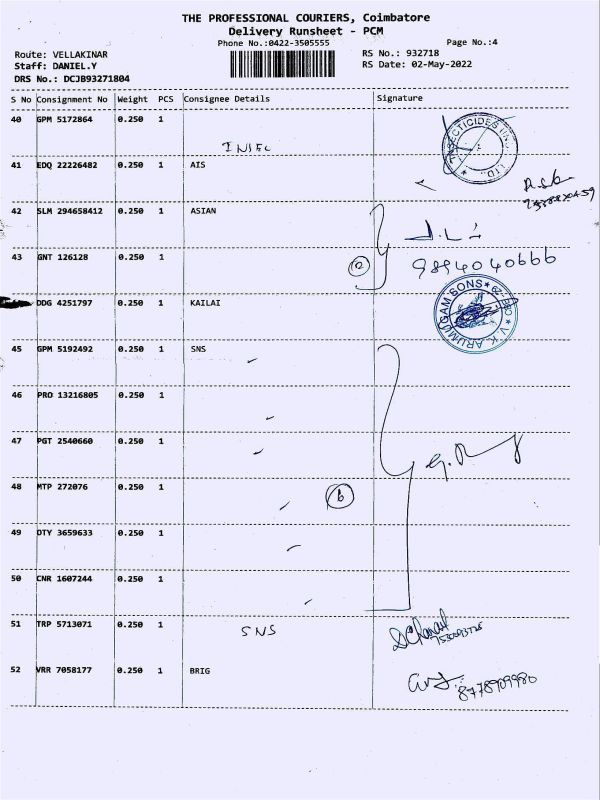 THE PROFESSIONAL COURIERS, Coimbatore
Delivery Runsheet - PCM
Phone No.:0422-3505555
Page No.:4
Route: VELLAKINAR
RS No.: 932718
Staff: DANIEL.Y
RS Date: 02-May-2022
DRS No.: DCJB93271804
S No Consignment No Weight PCS Consignee Details Signature
40 GPM 5172864 0.250 1
INSEC
41 EDQ 22226482 0.250 1 AIS
42 SLM 294658412 0.250 1 ASIAN
43 GNT 126128 0.250 1
9894040666
DDG 4251797 0.250 1 KAILAI
V.K.ARUMUGAM SONS
45 GPM 5192492 0.250 1 SNS
46 PRO 13216805 0.250 1
47 PGT 2540660 0.250 1
48 MTP 272076 0.250 1
6
49 DTY 3659633 0.250 1
50 CNR 1607244 0.250 1
51 TRP 5713071 0.250 1
SNS
52 VRR 7058177 0.250 1 BRIG
8778909980